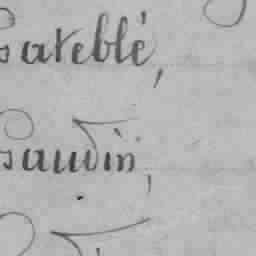 Gateblé,
Gaudin,